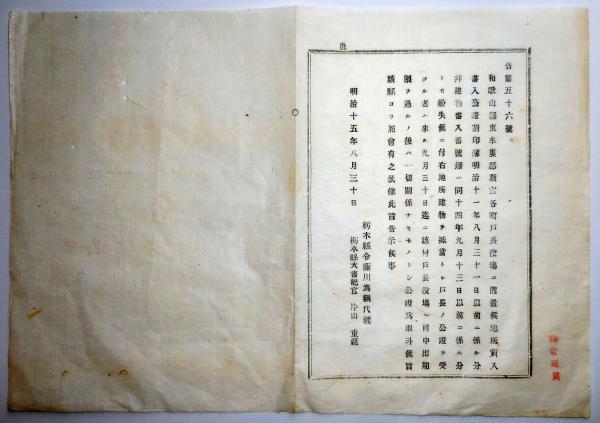 告第五十六號
和歌山縣東牟婁郡新宮各町戸長役場ニ備置候地所質入
書入公證割印簿明治十一年八月三十一日以前ニ係ル分
并建物書入番號簿ハ同十四年九月十三日以前ニ係ル分
トモ紛失候ニ付右地所建物ヲ抵當トシ戸長ノ公證ヲ受
タル者ハ來ル九月三十日迄ニ該村戸長役場ヘ可申出期
限ヲ過ルノ後ハ一切關係ナキモノトシ公證爲取斗候旨
該縣ヨリ照會有之候條此旨告示候事
明治十五年八月三十日
栃木縣令藤川爲親代理
栃木縣大書記官 片山重範